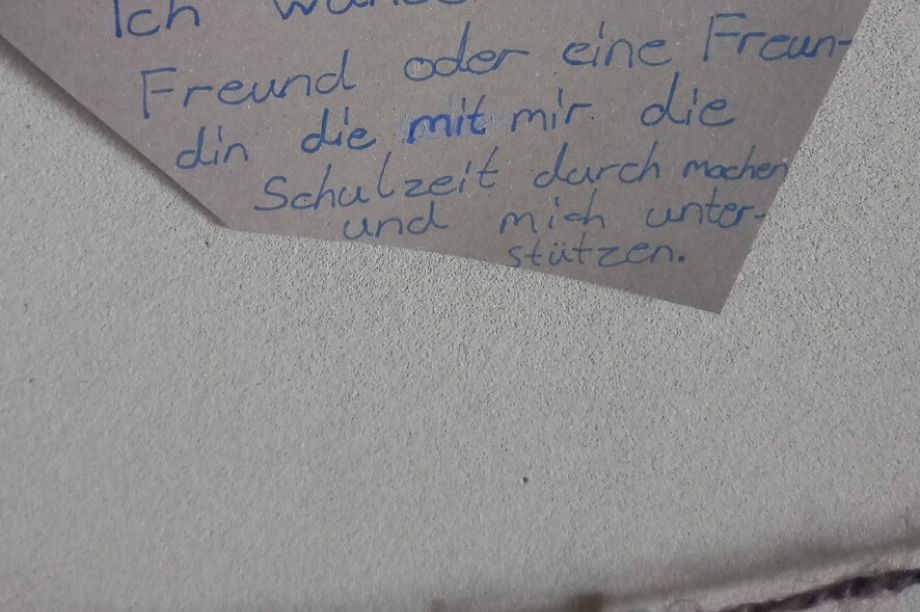 Ich
Freund oder eine Freun-
din die mit mir die
Schulzeit durch machen
und mich unter-
stützen.